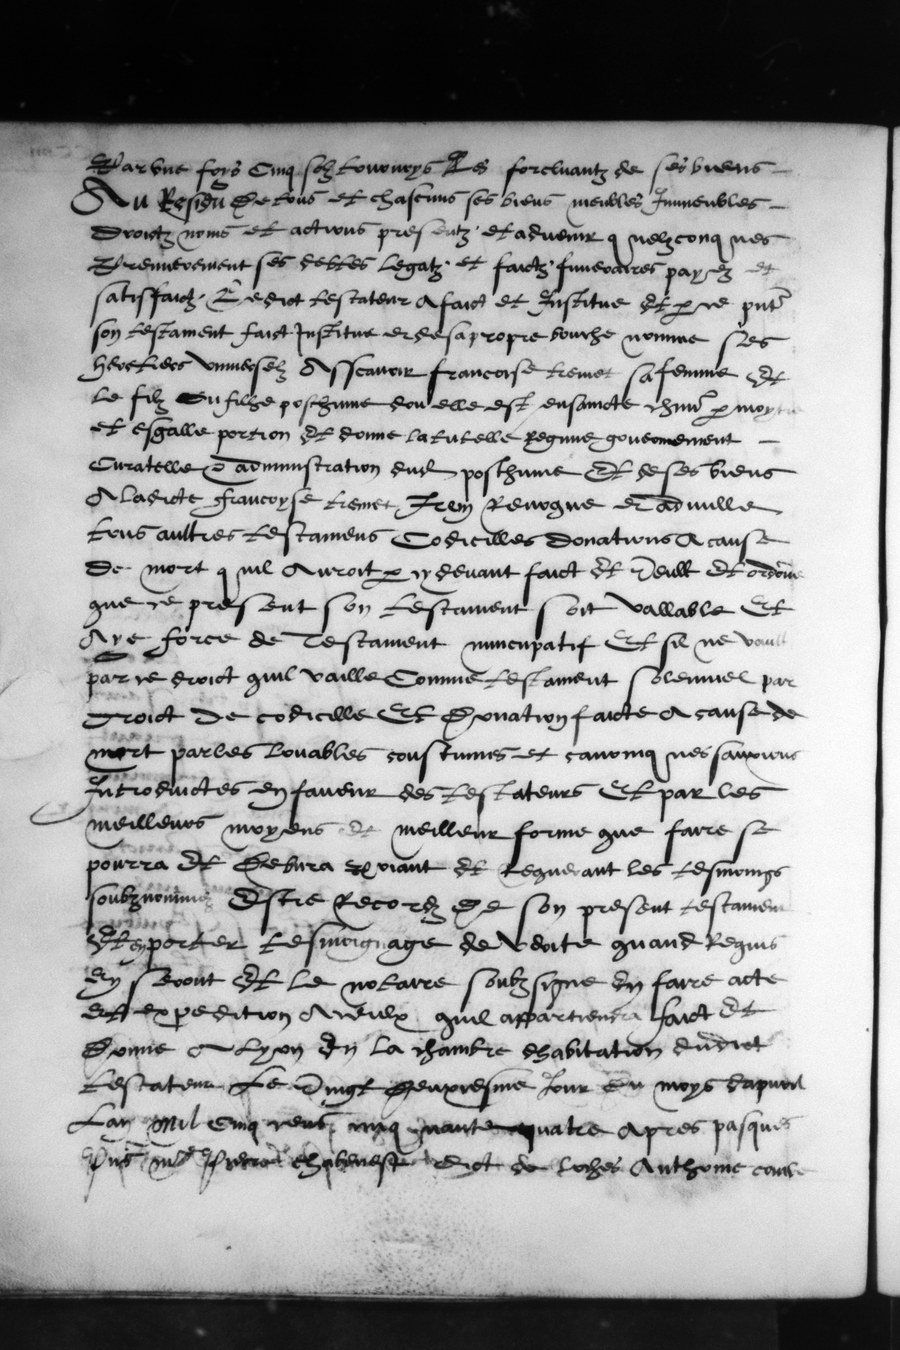 Par une foys Cinq solz tournoys Les forcluantz de ses biens
Au Residu De tous et chascuns ses biens meubles Immeubles
droictz noms et actions presentz et advenir q uelzconq ues
Premierement ses debtes legatz et faictz funeraires payez et
satisffaictz Ledict testateur A faict et Institue Et p ce pnt
son testament faict Institue et de sa propre bouche nomme ses
heretiers Universelz Asscavoir francoise tremet sa femme Et
le filz ou filhe posthume dou elle est ensaincte p moytie
et esgalle portion Et donne la tutelle Regime gouvernement
Curatelle & administration dud posthume Et de ses biens
A ladicte francoyse tremet Item Revoque et adnulle
tous aultres testamens Codicilles donations A cause
de mort q uil Auroit p cydevant faict Et Veult Et ordonne
que ce present son testament soit vallable Et
Aye force de Testament nuncupatif Et sil ne vault
par ce droict quil vaille Comme testament solennel par
Droict de codicille Et Donation faicte A cause de
mort par les louables coustumes et canoniq ues sanxions
Introductes en faveur des testateurs Et par les
meilleurs moyens et meilleur forme que faire se
pourra Et Debvra Et Requerant les tesmoings
soubznommez Estre Recordz De son present testament
Et en porter tesmoignage de verite quand Requis
En seront Et le notaire soubzsigne En faire acte
Et expedition A ceulx quil appartiendra faict Et
Donne A Lyon En la chambre dhabitation dudict
testateur Le Vingt Deuxiesme Jour du moys dapvril
Lan Mil Cinq cens cinq quante quatre Apres pasques
Pns Pierre dict de loches Anthoine